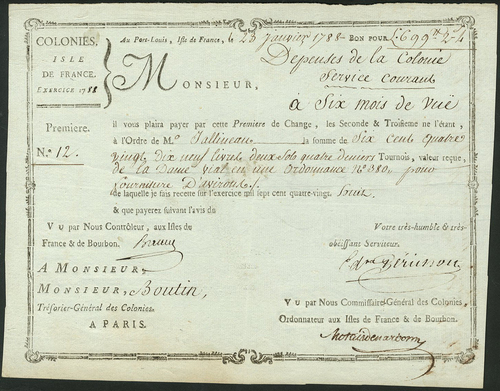 COLONIES.
ISLE
DE FRANCE.
EXERCICE 1788
Au Port-Louis, Isle de France, le 23 Janvier 1788 - BON POUR £ 699 " 2 - 4
Depenses de la Colonie
Service courant
MONSIEUR,
à Six mois de vuë
Premiere.
N.o 12.
Il vous plaira payer par cette Premiere de Change, les Seconde & Troisieme ne l'étant,
à l'Ordre de M. la somme de Six Cent quatre
vingt dix neuf livres deux Sols quatre deniers Tournois, valeur reçue,
de la Dame en une Ordonnance N.o 380 pour
fourniture d'avirons
de laquelle je fais recette sur l'exercice mil sept cent quatre-vingt huit
& que payerez suivant l'avis du
VU par Nous Contrôleur, aux Isles de
France & de Bourbon.
Votre très-humble & très-
obéissant Serviteur.
A MONSIEUR,
MONSIEUR, Boutin,
Trésorier-Général des Colonies.
A PARIS.
VU par Nous Commissaire-Général des Colonies,
Ordonnateur aux Isles de France & de Bourbon.